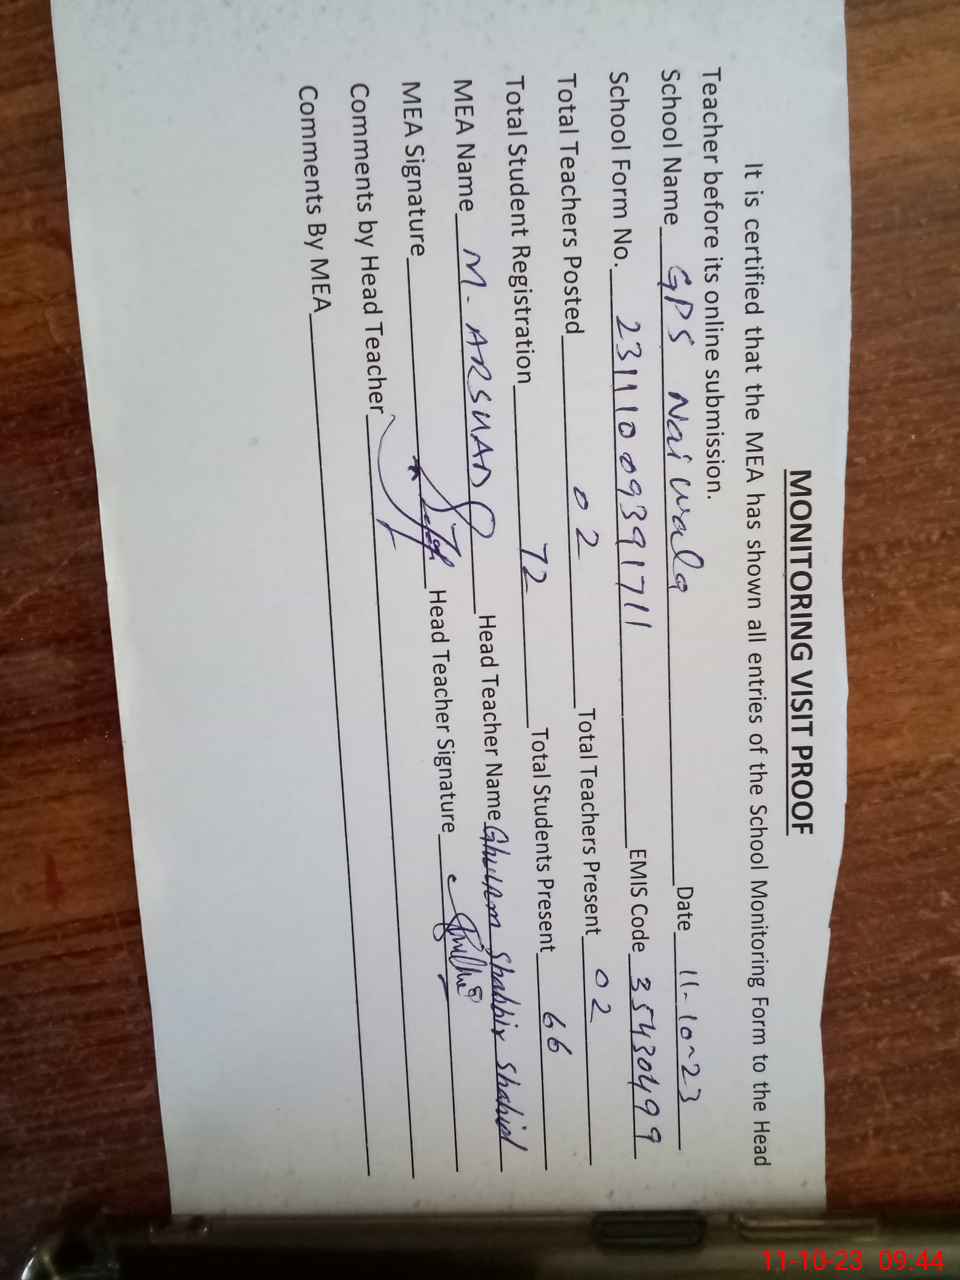 MONITORING VISIT PROOF
It is certified that the MEA has shown all entries of the School Monitoring Form to the Head
Teacher before its online submission.
School Name GPS Nai wala Date 11-10-23
School Form No. 23111009391711 EMIS Code 35430499
Total Teachers Posted 02 Total Teachers Present 02
Total Student Registration 72 Total Students Present 66
MEA Name M. ARSHAD Head Teacher Name Ghulam Shabbir Shahid
MEA Signature Head Teacher Signature
Comments by Head Teacher
Comments By MEA
11-10-23 09:44